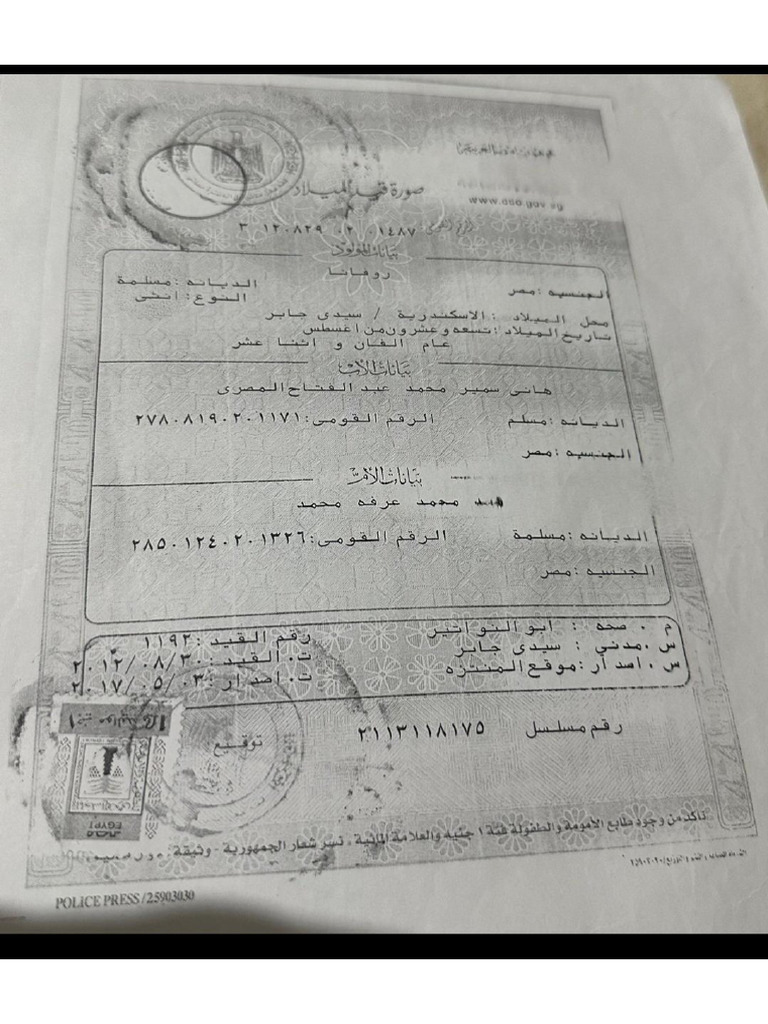 صورة قيد الميلاد
www.cso.gov.eg
الرقم القومى ٣ ١٢٠٨٢٩ ٠٢ ٠١٤٨٧
بيانات المولود
روفانا
الجنسيه :مصر الديانه :مسلمة
النوع :انثى
محل الميلاد :الاسكندرية / سيدى جابر
تاريخ الميلاد :تسعه وعشرون من اغسطس
عام الفان و اثنا عشر
بيانات الأب
هانى سمير محمد عبد الفتاح المصرى
الديانه :مسلم الرقم القومى:٢٧٨٠٨١٩٠٢٠١١٧١
الجنسيه :مصر
بيانات الأم
محمد عرفه محمد
الديانه :مسلمة الرقم القومى:٢٨٥٠١٢٤٠٢٠١٣٢٦
الجنسيه :مصر
م . صحه : ابو النواتير رقم القيد :١١٩٢
س .مدني : سيدى جابر ت. القيد :٢٠١٢/٠٨/٣٠
س . اصدار :موقع المنتزه ت. اصدار :٢٠١٧/٠٥/٠٣
رقم مسلسل ٢١١٣١١٨١٧٥
توقيع
EGYPT
تأكد من وجود طابع الأمومة والطفولة فئة ١ جنيه والعلامة المائية ، نسر شعار الجمهورية - وثيقة
POLICE PRESS /25903030